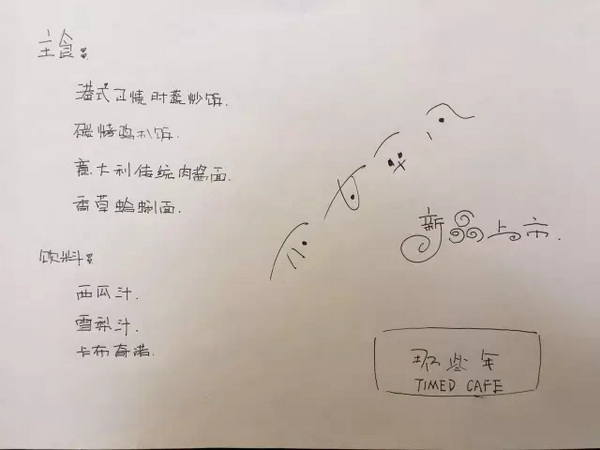 主食:
港式卫烧时蔬炒饭.
碳烤鸡扒饭.
意大利传统肉酱面.
香草蛤蜊面.
饮料:
西瓜汁.
雪梨汁.
卡布奇诺.
新品上市.
那些年
TIMED CAFE